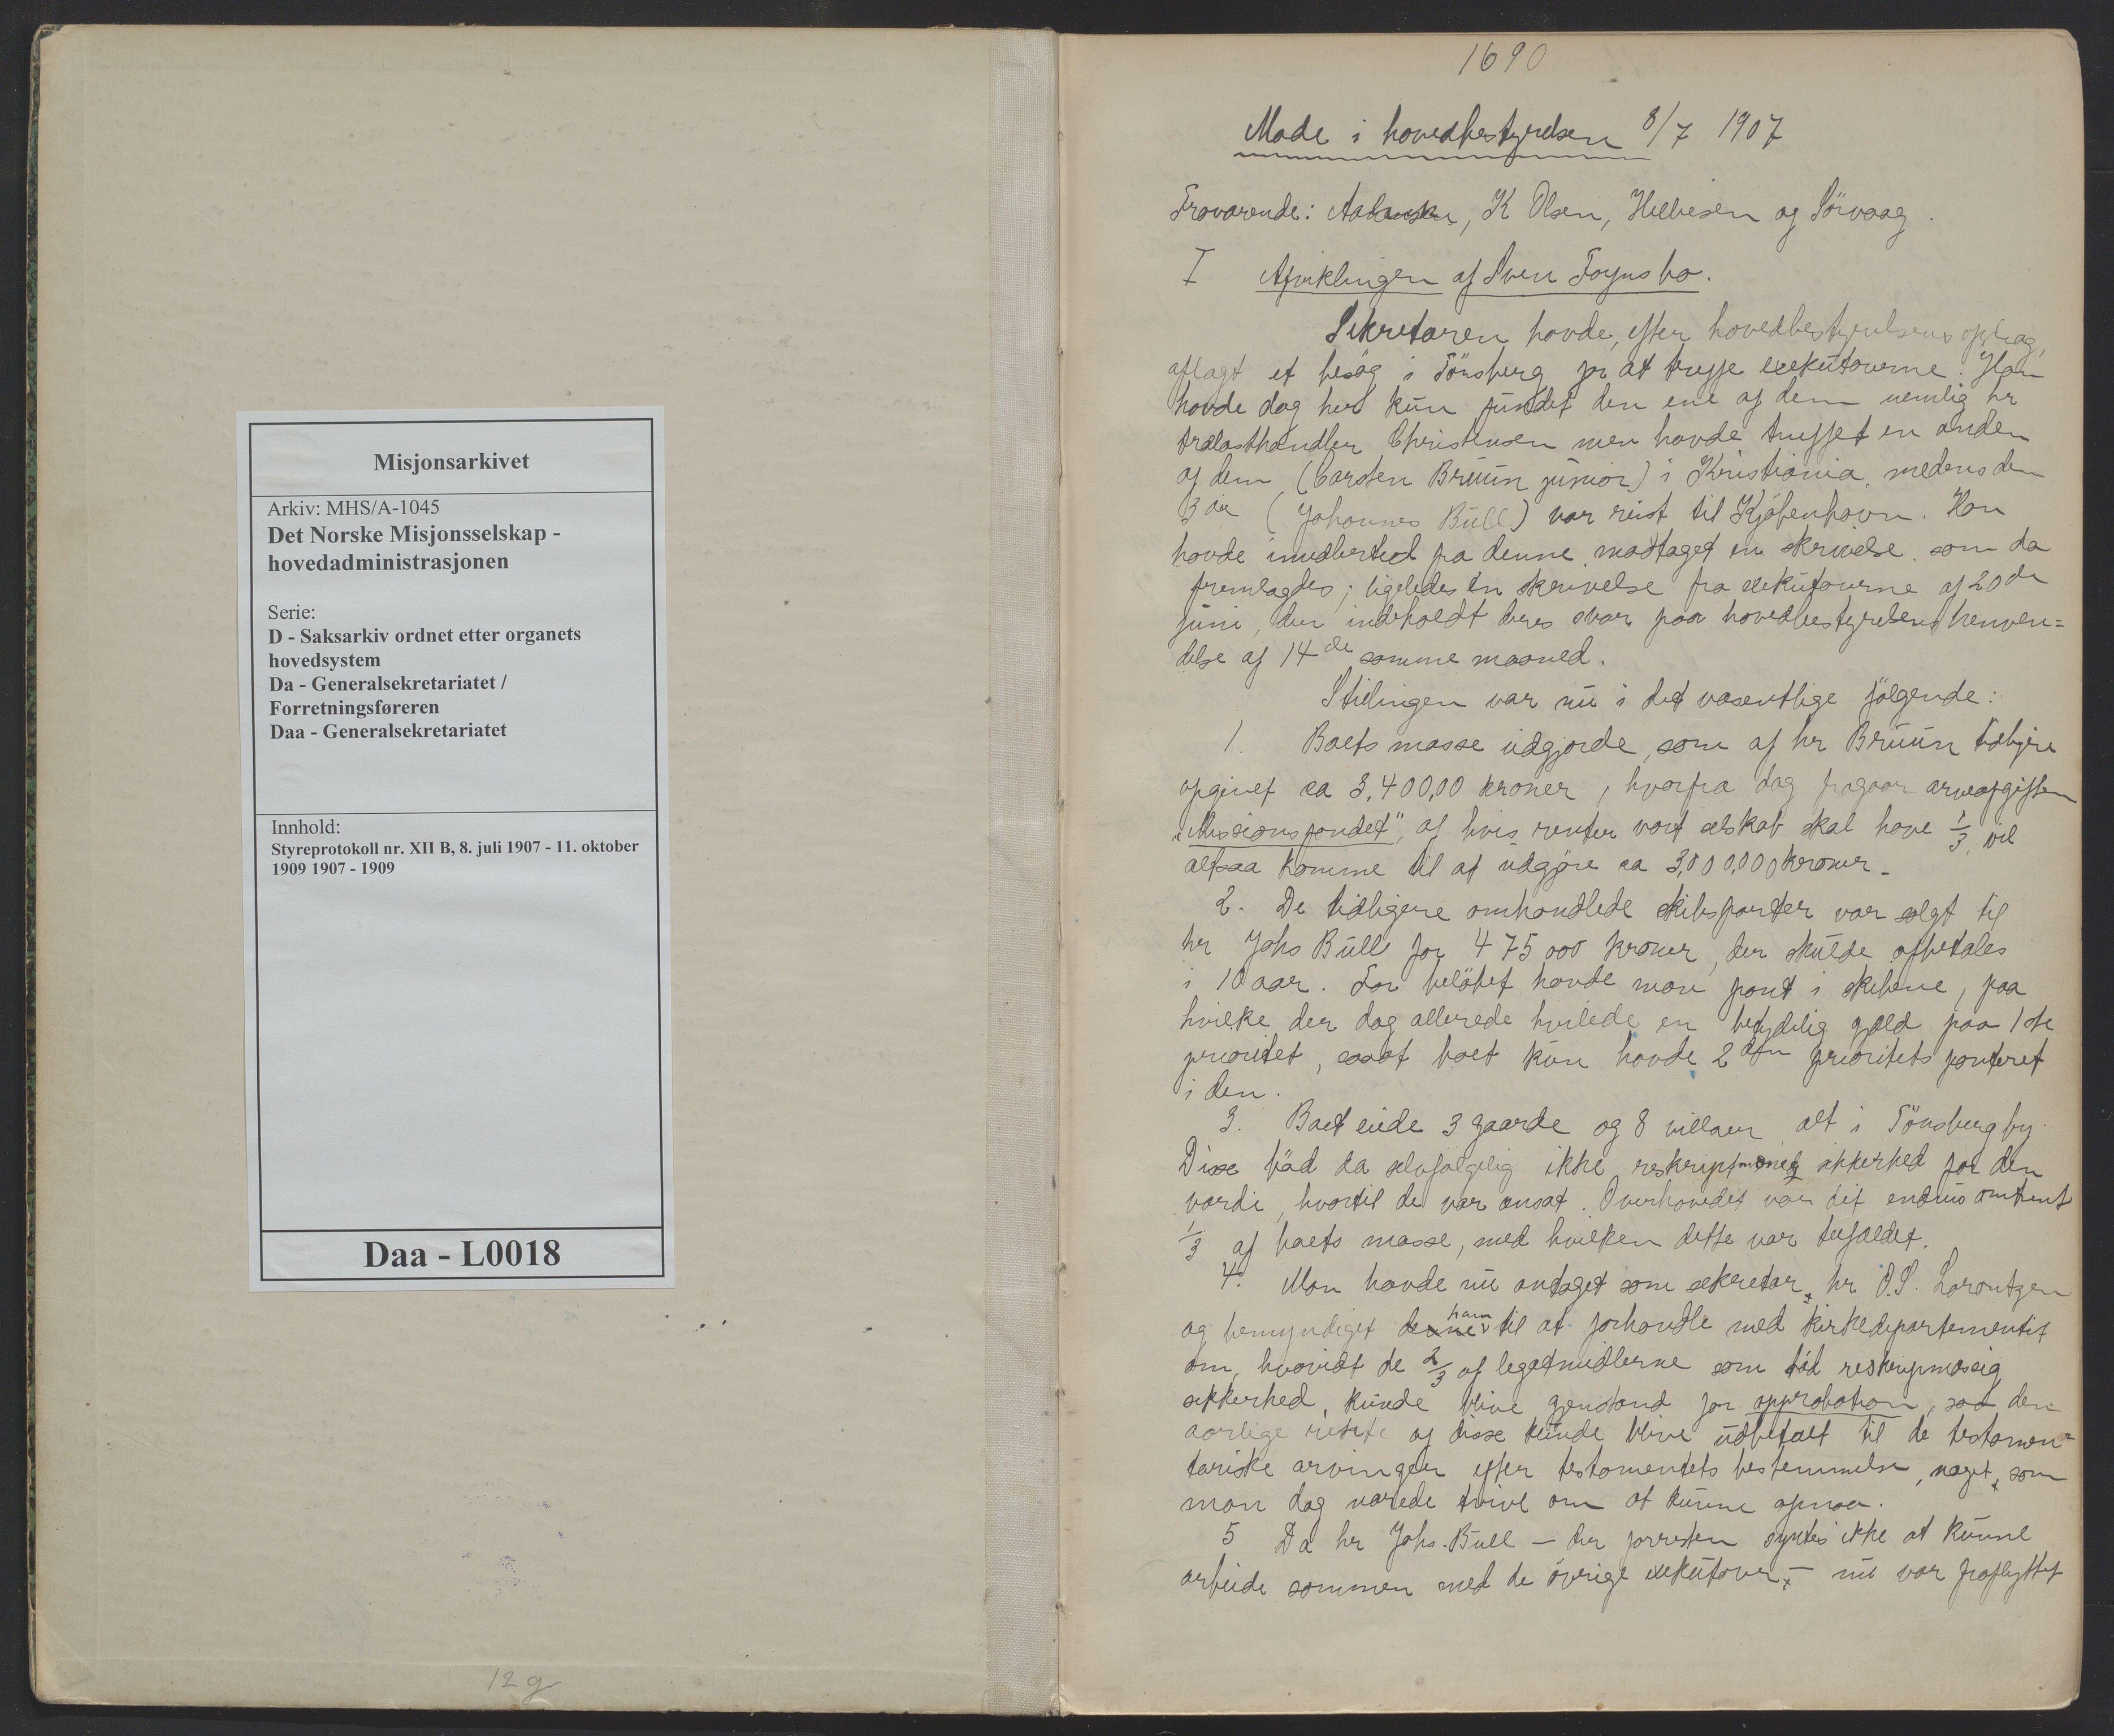 Misjonsarkivet
Arkiv: MHS/A-1045
Det Norske Misjonsselskap -
hovedadministrasjonen
Serie:
D - Saksarkiv ordnet etter organets
hovedsystem
Da - Generalsekretariatet /
Forretningsføreren
Daa - Generalsekretariatet
Innhold:
Styreprotokoll nr. XII B, 8. juli 1907 - 11. oktober
1909 1907 - 1909
Daa - L0018
12 g
1690
Møde i hovedbestyrelsen 8/7 1907
Fraværende: K Olsen, Hellesen og Sörvaag.
I Afviklingen af Sven Foyns bo.
Sekretæren havde, efter hovedbestyrelsens opdrag,
aflagt et besög i Tönsberg for at træffe exekutorerne. Han
havde dog her kun fundet den ene af dem nemlig hr
trælasthandler Christensen men havde truffet en anden
af dem (Carsten Bruun junior) i Kristiania, medens den
3die (Johannes Bull) var reist til Kjöbenhavn. Han
havde imidlertid fra denne modtaget en skrivelse som da
fremlagdes; ligeledes en skrivelse fra exekutorerne af 20de
juni, der indeholdt deres svar paa hovedbestyrelsens henven=
delse af 14de samme maaned.
Stillingen var nu i det væsentlige fölgende:
1. Boets masse udgjorde, som af hr Bruun tidligere
opgivet ca 3,400,00 kroner, hvorfra dog fragaar arveafgiften
"Missionsfondet", af hvis renter vort selskab skal have 1/3, vil
altsaa komme til at udgjöre ca 3,000,000 kroner.
2. De tidligere omhandlede skibsparter var solgt til
hr Johs Bull for 475 000 kroner, der skulde afbetales
i 10 aar. For belöbet havde man pant i skibene, paa
hvilke der dog allerede hvilede en betydelig gjæld paa 1ste
prioritet, saaat boet kun havde 2den prioritets panteret
i den.
3. Boet eiede 3 gaarde og 8 villaer alt i Tönsberg by.
Disse böd da selvfølgelig ikke reskriptmæssig sikkerhed for den
værdi, hvortil de var ansat. Overhovedet var det endnu omtrent
1/3 af boets masse, med hvilken dette var tilfældet.
4. Man havde nu antaget som sekretær hr O.S. Lorentzen
og bemyndiget denne ham til at forhandle med kirkedepartementet
om, hvorvidt de 2/3 af legatmidlerne som böd reskriptmæssig
sikkerhed, kunde blive gjenstand for approbation, saa den
aarlige rente af disse kunde blive udbetalt til de testamen=
tariske arvinger efter testamentets bestemmelse, noget, som
man dog nærede tvivl om at kunne opnaa.
5 Da hr Johs. Bull - der forresten syntes ikke at kunne
arbeide sammen med de övrige exekutorer - nu var fraflyttet